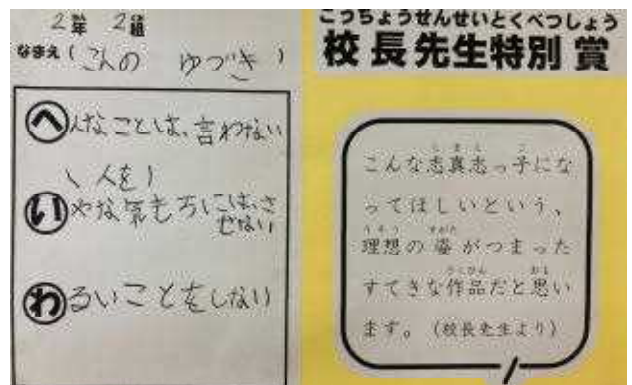 2年 2組
なまえ(こんの ゆづき)
へんなことは、言わない
(人を)
いやな気もちにはさ
せない
わるいことをしない
こうちょうせんせいとくべつしょう
校長先生特別賞
しまし こ
こんな志真志っ子にな
ってほしいという、
りそう すがた
理想の姿がつまった
さくひん おも
すてきな作品だと思い
ます。(校長先生より)